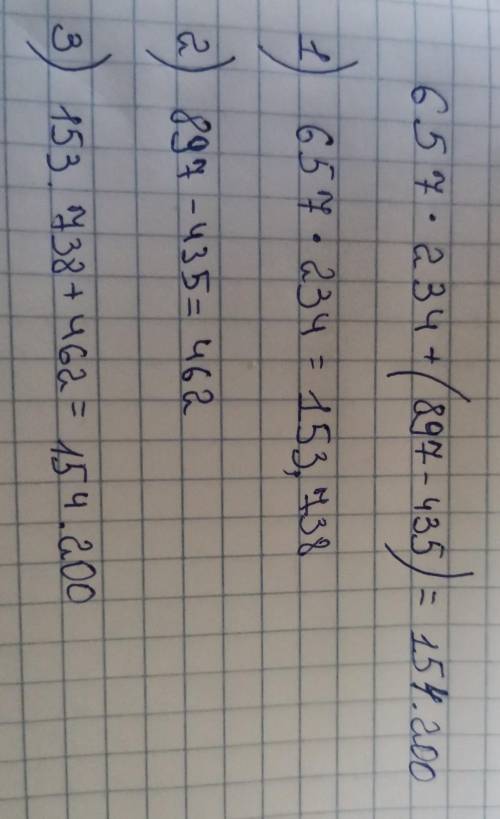 657 · 234 + (897 - 435) = 154.200
1) 657 · 234 = 153,738
2) 897 - 435 = 462
3) 153.738 + 462 = 154.200